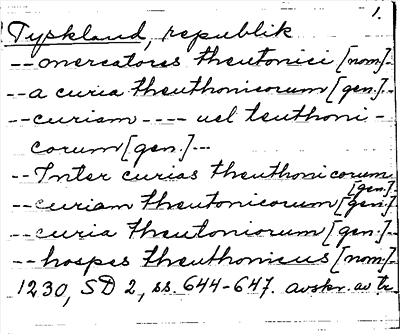 1.
Tyskland, republik
-- mercatores theutonici [nom]--
-- a curia theuthonicorum [gen.]--
-- curiam ---- uel teuthoni-
corum [gen.] --
-- Inter curias theuthonicorum
[gen.]--
-- curiam theutonicorum [gen.]
-- curia theutoniorum [gen.]--
-- hospes theuthonicus [nom]--
1230, SD 2, ss. 644-647. avskr. av tr.